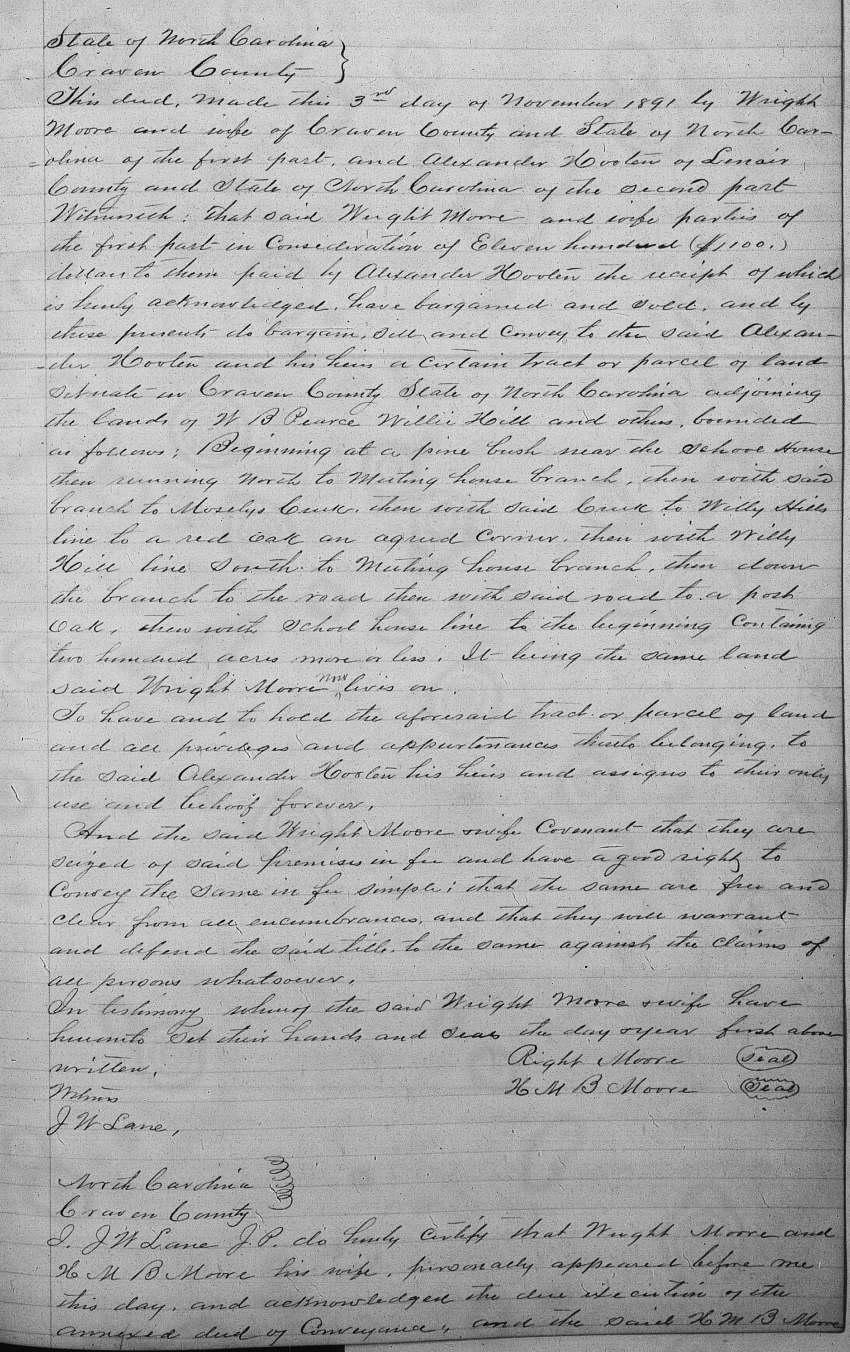 State of North Carolina }
Craven County }
This deed, made this 3rd day of November 1891 by Wright
Moore and wife of Craven County and State of North Car-
olina of the first part, and Alexander Hooten of Lenoir
County and State of North Carolina of the second part
Witnesseth: that said Wright Moore and wife parties of
the first part in Consideration of Eleven hundred ($1100.)
dollars to them paid by Alexander Hooten the receipt of which
is hereby acknowledged, have bargained and sold, and by
these presents do bargain, sell and convey to the said Alexan-
der Hooten and his heirs a certain tract or parcel of land
situate in Craven County State of North Carolina adjoining
the lands of W B Pearce Willie Hill and others, bounded
as follows; Beginning at a pine bush near the School House
then running North to Meeting house branch, then with said
branch to Moselys Creek, then with said Creek to Willy Hills
line to a red oak an agreed corner, then with Willy
Hill line South to Meeting house branch, then down
the branch to the road then with said road to a post
Oak, then with School house line to the beginning Containing
two hundred acres more or less. It being the same land
said Wright Moore now lives on.
To have and to hold the aforesaid tract or parcel of land
and all privileges and appurtenances thereto belonging, to
the said Alexander Hooten his heirs and assigns to their only
use and behoof forever.
And the said Wright Moore & wife Covenant that they are
seized of said premises in fee and have a good right to
Convey the same in fee simple; that the same are free and
clear from all encumbrances, and that they will warrant
and defend the said title to the same against the claims of
all persons whatsoever.
In testimony whereof the said Wright Moore & wife have
hereunto set their hands and seals the day & year first above
written.
Right Moore (Seal)
H M B Moore (Seal)
Witness
J W Lane,
North Carolina
Craven County
I, J W Lane J.P. do hereby certify that Wright Moore and
H M B Moore his wife, personally appeared before me
this day, and acknowledged the due execution of the
annexed deed of Conveyance, and the said H M B Moore